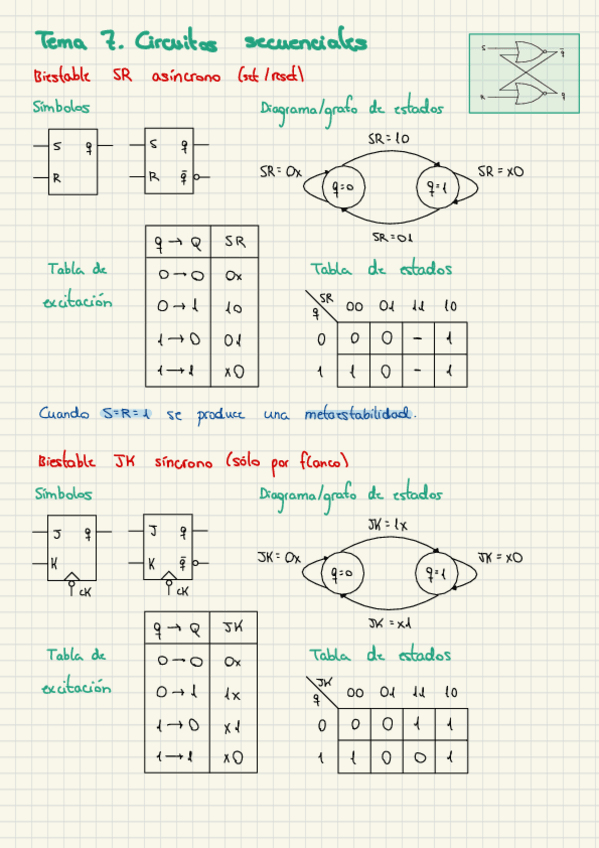 Tema 7. Circuitos secuenciales
Biestable SR asíncrono (set/reset)
S
q̄
R
q
Símbolos
Diagrama/grafo de estados
S q
R
S q
R q̄
SR=10
SR=0x
q=0
q=1
SR=x0
SR=01
Tabla de
excitación
q→Q SR
0→0 0x
0→1 10
1→0 01
1→1 x0
Tabla de estados
SR
q
00 01 11 10
0 0 0 - 1
1 1 0 - 1
Cuando S=R=1 se produce una metaestabilidad.
Biestable JK síncrono (sólo por flanco)
Símbolos
Diagrama/grafo de estados
J q
K
CK
J q
K q̄
CK
JK=1x
JK=0x
q=0
q=1
JK=x0
JK=x1
Tabla de
excitación
q→Q JK
0→0 0x
0→1 1x
1→0 x1
1→1 x0
Tabla de estados
JK
q
00 01 11 10
0 0 0 1 1
1 1 0 0 1